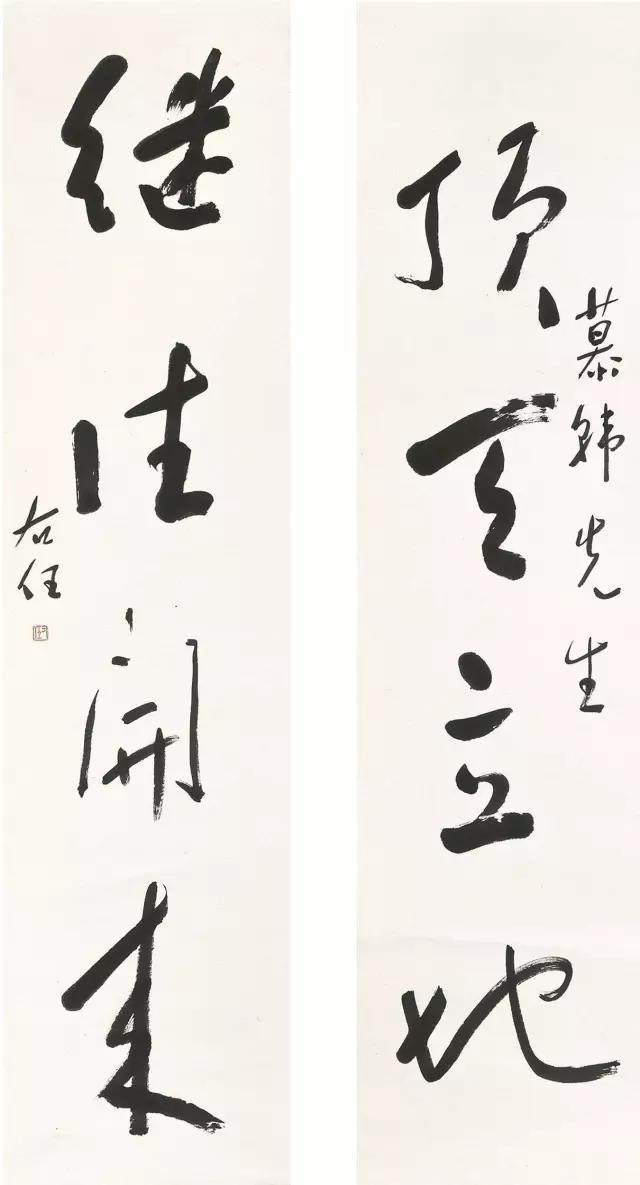 顶天立地
慕韩先生
继往開来
右任